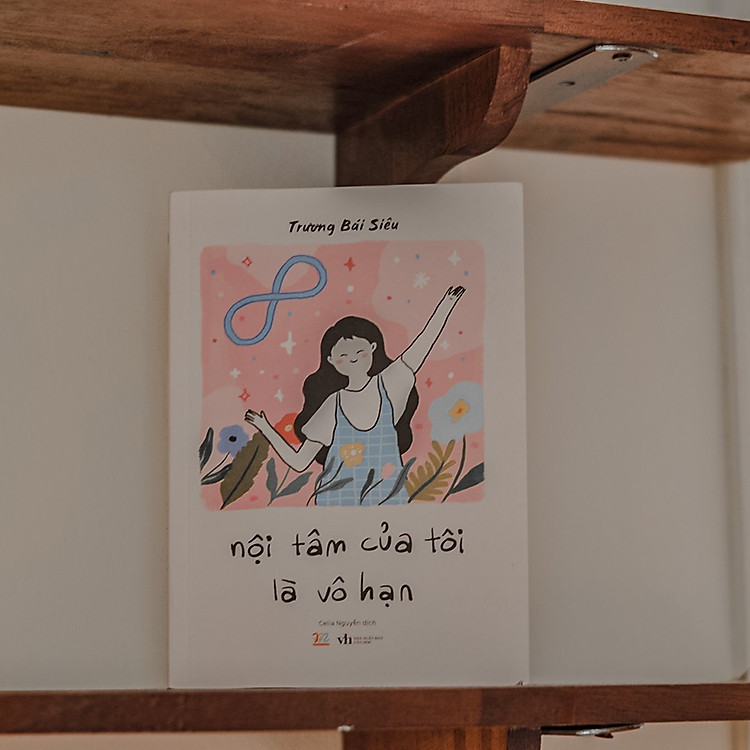 Trương Bái Siêu
nội tâm của tôi
là vô hạn
Celia Nguyễn dịch
vh